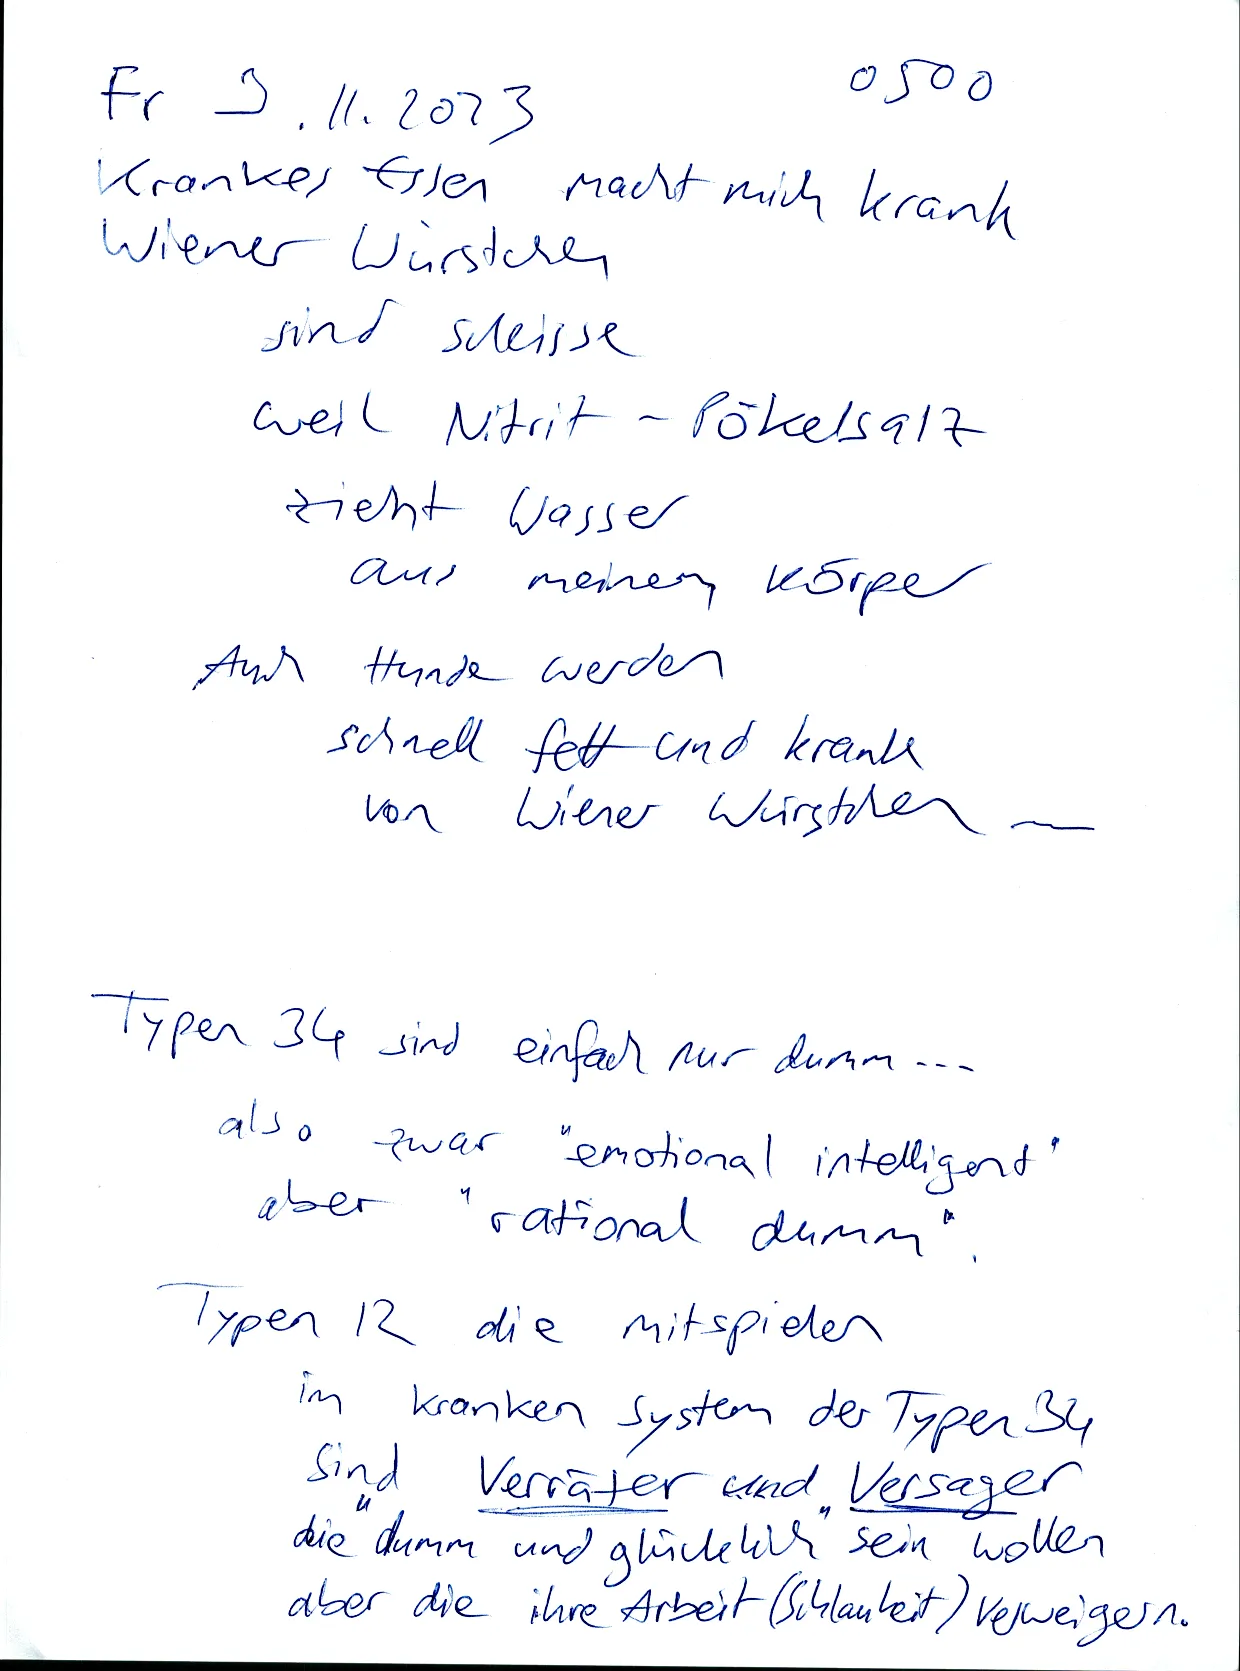 Fr 3.11.2023 0500
Krankes Essen macht mich krank
Wiener Würstchen
sind scheisse
weil Nitrit-Pökelsalz
zieht Wasser
aus meinem Körper
Auch Hunde werden
schnell fett und krank
von Wiener Würstchen —
Typen 34 sind einfach nur dumm...
also zwar "emotional intelligent"
aber "rational dumm".
Typen 12 die mitspielen
im kranken System der Typen 34
sind Verräter und Versager
die "dumm und glücklich" sein wollen
aber die ihre Arbeit (Schlauheit) verweigern.